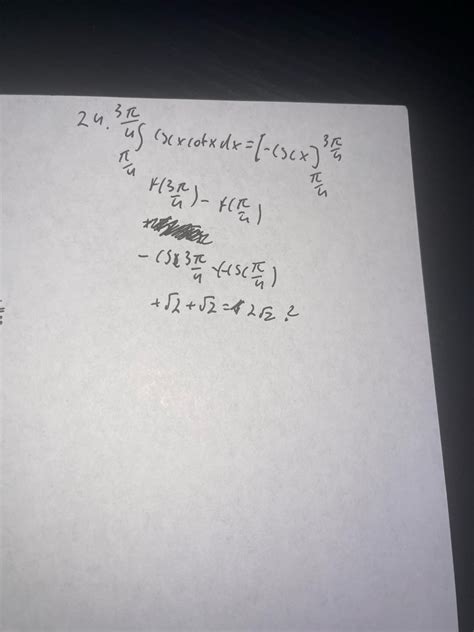 24. ∫ 3π/4 π/4 csc x cot x dx = [-csc x] 3π/4 π/4
F(3π/4) - F(π/4)
-csc 3π/4 + csc(π/4)
+√2 + √2 = 2√2 ?